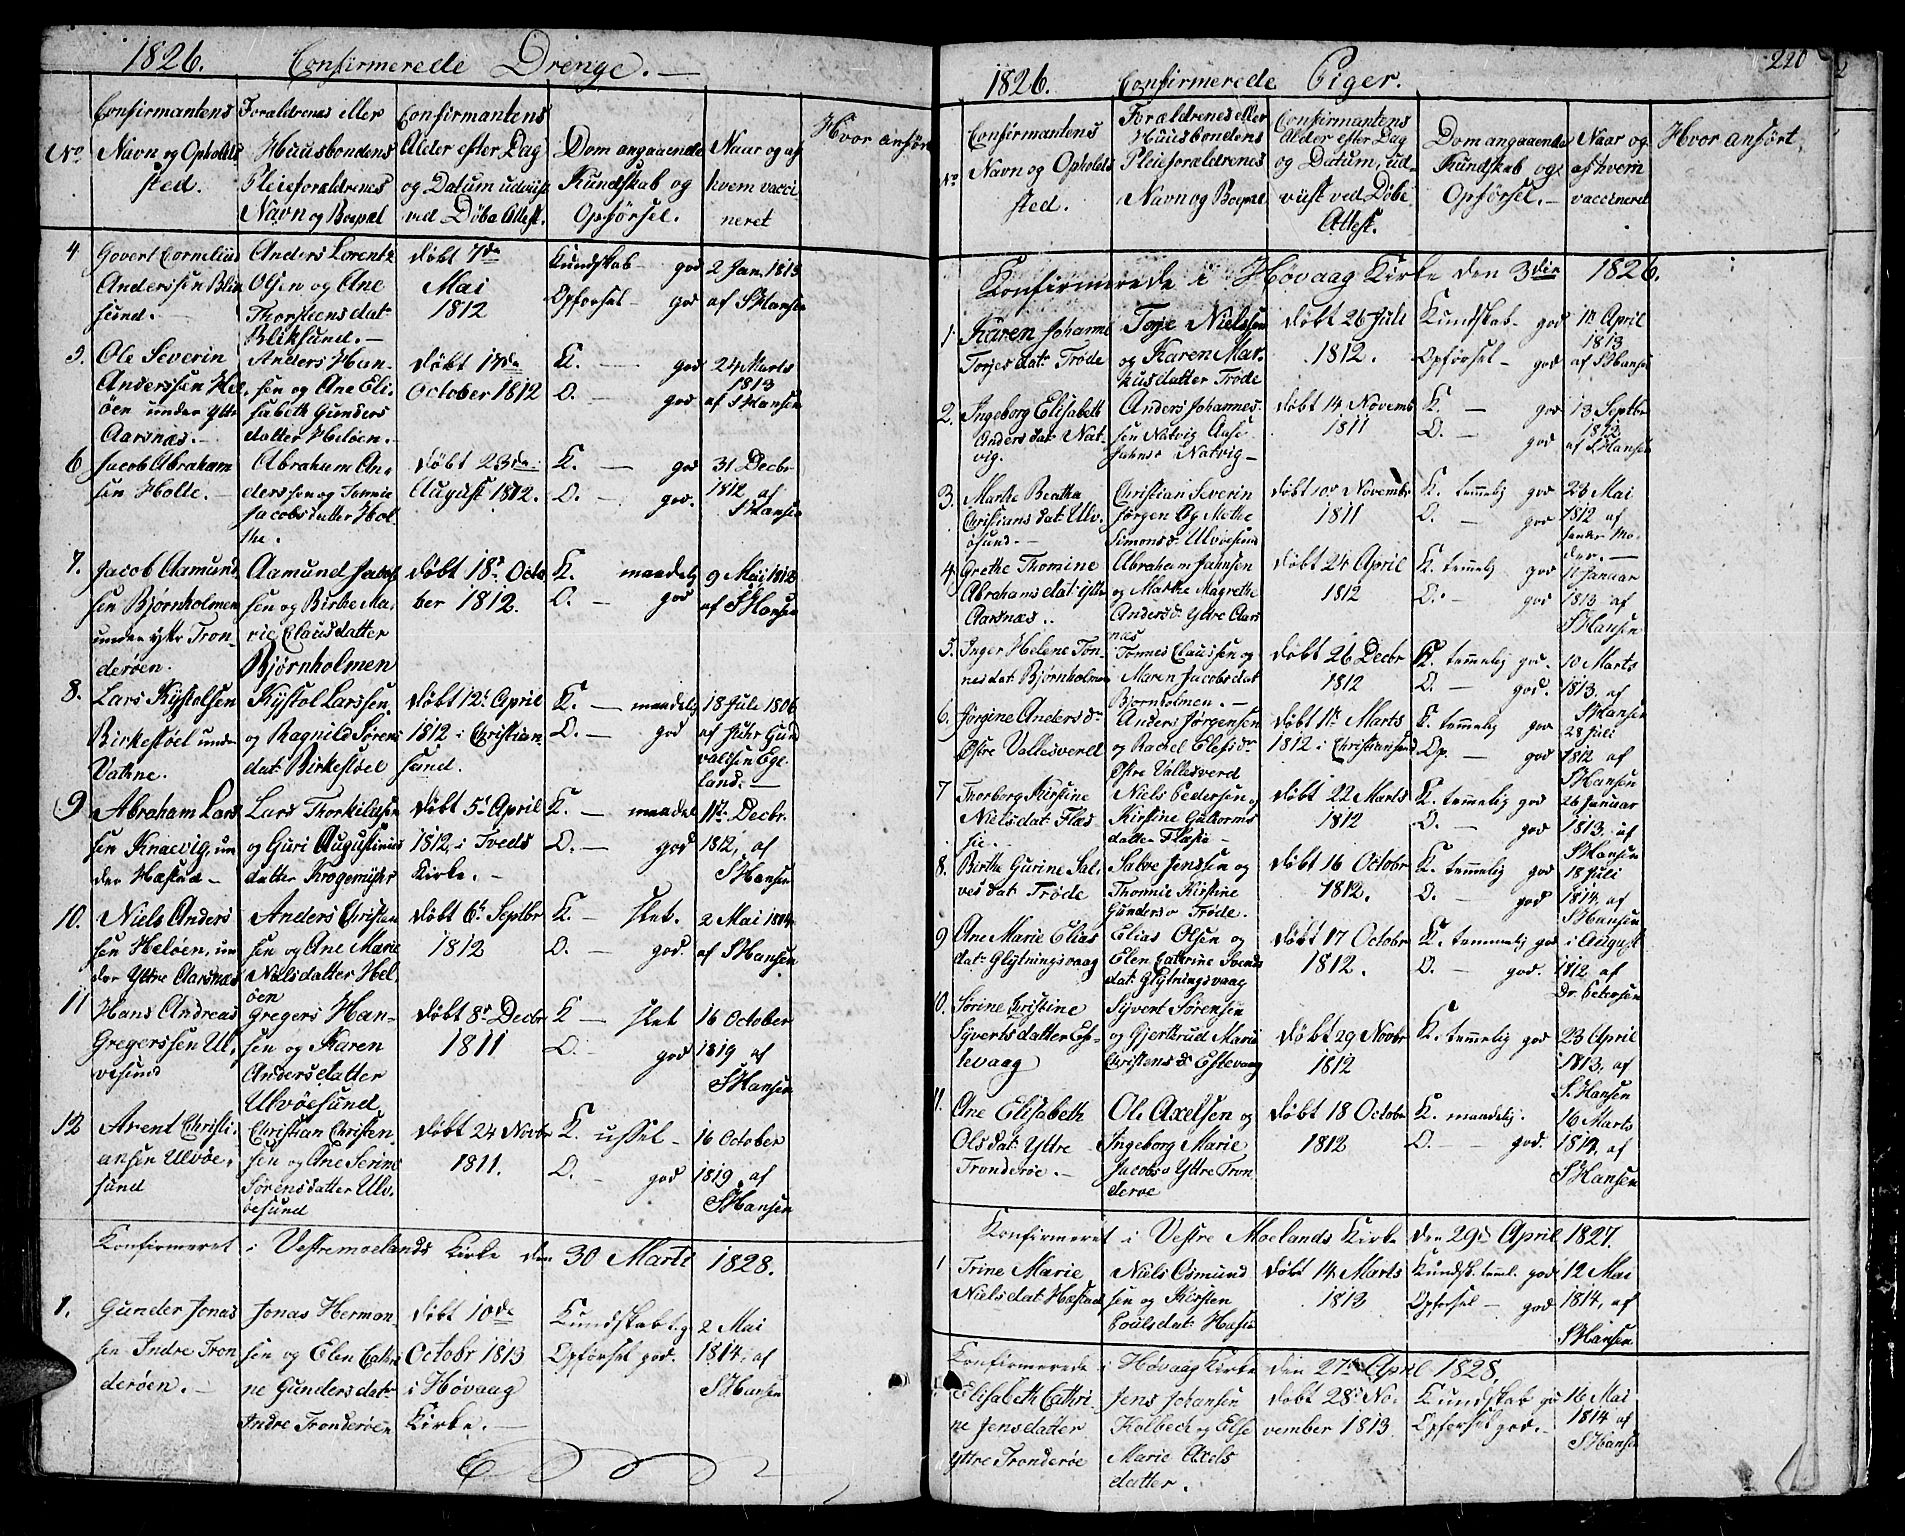 1826. Confirmerede Drenge. —
No.
Confirmantens
Navn og Opholds
sted.
Foraldrenes eller
Huusbondens
Pleieforaldrenes
Navn og Boepæl
Confirmantens
Alder efter Dag
og Datum udviist
ved Døbe Attest.
Dom angaaende
Kundskab og
Opførsel.
Naar og af
hvem vacci
neret
Hvor anført
4
Govert Cornelius
Anderssen Blik
sund. —
Anders Lorentz
Olsen og Ane
Thorstensdat
Bliksund. —
døbt 7de
Mai
1812
Kundskab — god
Opførsel — god
2 Jan. 1813
af SHansen
5.
Ole Severin
Anderssen Hel
øen under Ytre
Aarsnæs. —
Anders Han-
sen og Ane Eli-
sabeth Gunders
datter Heløen. —
døbt 17de
October 1812
K. — god
O. — god
24 Marts
1813
af SHansen
6
Jacob Abraham
sen Holte. —
Abraham An-
derssen og Tonnie
Jacobsdatter Hol
the.
døbt 23de
August 1812.
K. — god
O. — god.
31 Decbr
1812 af
SHansen
7.
Jacob Aamund
sen Bjørnholmen
under ytre Tron-
derøen.
Aamund Jacob
sen og Birthe Ma-
rie Clausdatter
Bjørnholmen
døbt 18de Octo
ber 1812.
K. maadelig
O. — god
9 Mai 1813
af SHansen
8.
Lars Kystolsen
Birkestøel under
Vathne.
Kystol Larssen
og Ragnild Sørens
dat: Birkestøel
døbt 12te April
1812 i Christian-
sand.
K. — maadelig
O. — god
18 Juli 1806
af Juhr Gund
valdsen Ege
land. —
9
Abraham Lars
sen Knaevig, un
der Hæstad —
Lars Thorkildsen
og Guri Augustinus
datter Krogemyhr
døbt 5te April
1812, i Tveds
Kirke. —
K. — maadel
O. — god
11te Decbr.
1812, af
SHansen
10.
Niels Anders
sen Heløen, un
der Yttre Aarsnæs
Anders Christen
sen og Ane Marie
Nielsdatter Hel
øen
døbt 6te Septbr
1812
K. — slet.
O. — god.
2 Mai 1814
af SHansen
11
Hans Andreas
Gregerssen Ul,
vøsund
Gregers Han-
sen og Karen
Andersdatter
Ulvøesund
døbt 8de Decbr
1811
K — slet
O. — god
16 October
1819 af
SHansen
12
Arent Christi,
ansen Ulvøe,
sund
Christian Christen-
sen og Ane Serine
Sørensdatter Ulv,
øesund
døbt 24 Novbr
1811.
K. ussel —
O. — god
16 October
1819 af
SHansen
Konfirmeret i Vestremoelands Kirke den 30 Marts 1828.
1.
Gunder Jonas
sen Indre Tron
derøen. —
Jonas Herman-
sen og Elen Cathri
ne Gundersdat
Indre Tronderøen
døbt 10de
Octobr 1813
i Høvaag
Kirke. —
Kundskab tg.
Opførsel god.
2 Mai
1814, af
SHansen
220
1826. Confirmerede Piger.
No
Confirmantens
Navn og Opholds
sted.
Forældrenes eller
Huusbondens
Pleieforaldrenes
Navn og Boepæl
Confirmantens
Alder efter Dag
og Datum, ud-
viist ved Døbe
Attest.
Dom angaaende
Kundskab og
Opførsel. —
Naar og
af hvem
vaccineret
Hvor anført.
Konfirmerede i Høvaag Kirke den 3die 1826.
1.
Karen Johanne
Torjesdat: Trøde
Torje Nielssen
og Karen Mar-
kusdatter Trøde
døbt 26 Juli
1812.
Kundskab — god
Opførsel — god
10 April
1813
af SHansen
2.
Ingeborg Elisabeth
Andersdat: Nat-
vig.
Anders Johannes-
sen Natvig
Natvig —
døbt 14 Novembr
1811
K. — god
O. — god
13 Septbr
1812
af SHansen
3.
Marthe Beatha
Christiansdat: Ulv-
øsund. —
Christian Severin
Jørgen og Methe
Simonsd: Ulvøesund
døbt 10de Novembr
1811
K. temmelig god
O. — god
23 Mai
1812 af
sender Mo-
der. —
4
Grethe Thomine
Abrahamsdat: ytre
Aarsnæs..
Abraham Jahnsen
og Marthe Magrethe
Andersd: Yttre Aars
næs
døbt 24 April
1812
K. temmelig god
O. — god
10 Januar
1813 af
SHansen
5.
Inger Helene Tøn-
nesdat: Bjørnholmen
Tønnes Claussen og
Maren Jacobsdat
Bjørnholmen. —
døbt 26 Decbr
1812
K. temmelig god.
O. — god.
10 Marts
1813. af
SHansen
6.
Jørgine Andersdr
Østre Vallesverd
Anders Jørgensen
og Rachel Elefsdr
Østre Vallesverd
døbt 11te Marts
1812 i Christiansand
K. temmelig god
Op. — god
28 Juli
1812 af
SHansen
7
Thorborg Kirstine
Nielsdat: Flæs-
sie. —
Niels Pedersen og
Kirstine Guttorms
datter Flæsie —
døbt 22 Marts
1812
K. temmelig god
O. — god
26 Januar
1813. af
SHansen
8.
Birthe Gurine Sal-
vesdat: Trøde
Salve Jenssen og
Thomie Kirstine
Gundersd Trøde.
døbt 16 Octobr
1812.
K. temmelig god
O. — god
18 Juli
1814, af
SHansen
9
Ane Marie Elias
dat: Glytningsvaag
Elias Olsen og
Elen Cathrine Svends
dat: Glytningsvaag
døbt 17 Octobr
1812.
K. temmelig god
O. — god.
i August
1812 af
Dr. Petersen
10.
Sørine Cristine
Syvertsdatter Eps-
tevaag
Syvert Sørensen
og Gjertrud Marie
Christensd: Estevaag
døbt 29 Novbr
1812
K. temmelig god
23 April
1813, af
S. Hansen
11.
Ane Elisabeth
Olsdat: Yttre
Tronderøe. —
Ole Axelsen og
Ingeborg Marie
Jacobsd Yttre Tron
derøe
døbt 18 Octobr
1812
K. maadelig.
O. — god.
16 Marts
1814, af
SHansen
Konfirmeret i Vestre Moelands Kirke den 29de April 1827.
1
Trine Marie
Nielsdat: Hæstad
Niels Osmund
sen og Kirsten
Poulsdat: Hæstad
døbt 14 Marts
1813
Kundsk. teml. god
Opførsel — god
12 Mai
1814, af
SHansen
Konfirmerede i Høvaag Kirke den 27de April 1828,
Elisabeth Cathri-
ne Jensdatter
Yttre Tronderøe
Jens Johansen
Kolbech og Else
Marie Axels
datter.
døbt 28de No-
vember 1813.
Kundskab god
Opførsel god. —
16 Mai
1814 af
SHansen